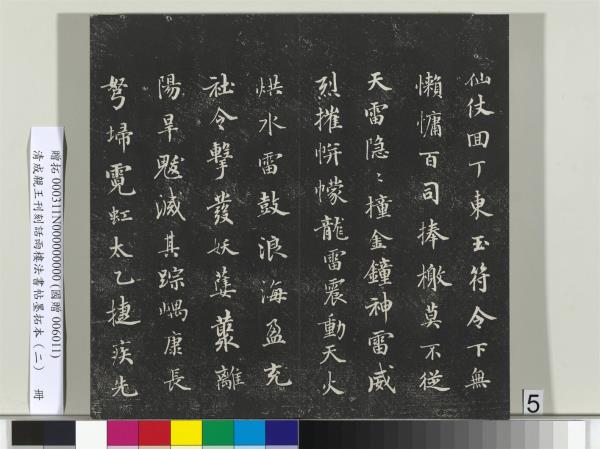 仙仗回丁東玉符令下無
懶慵百司捧檄莫不從
天雷隐〻撞金鐘神雷威
烈摧帡幪龍雷震動天火
烘水雷鼓浪海盈充
社令擊發妖蔂離
陽旱魃滅其踪嵎康長
弩埽霓虹太乙捷疾先
贈拓 000311N000000000 (國贈 006011)
清成親王刊刻詒雨樓法書帖墨拓本（二） 冊
5